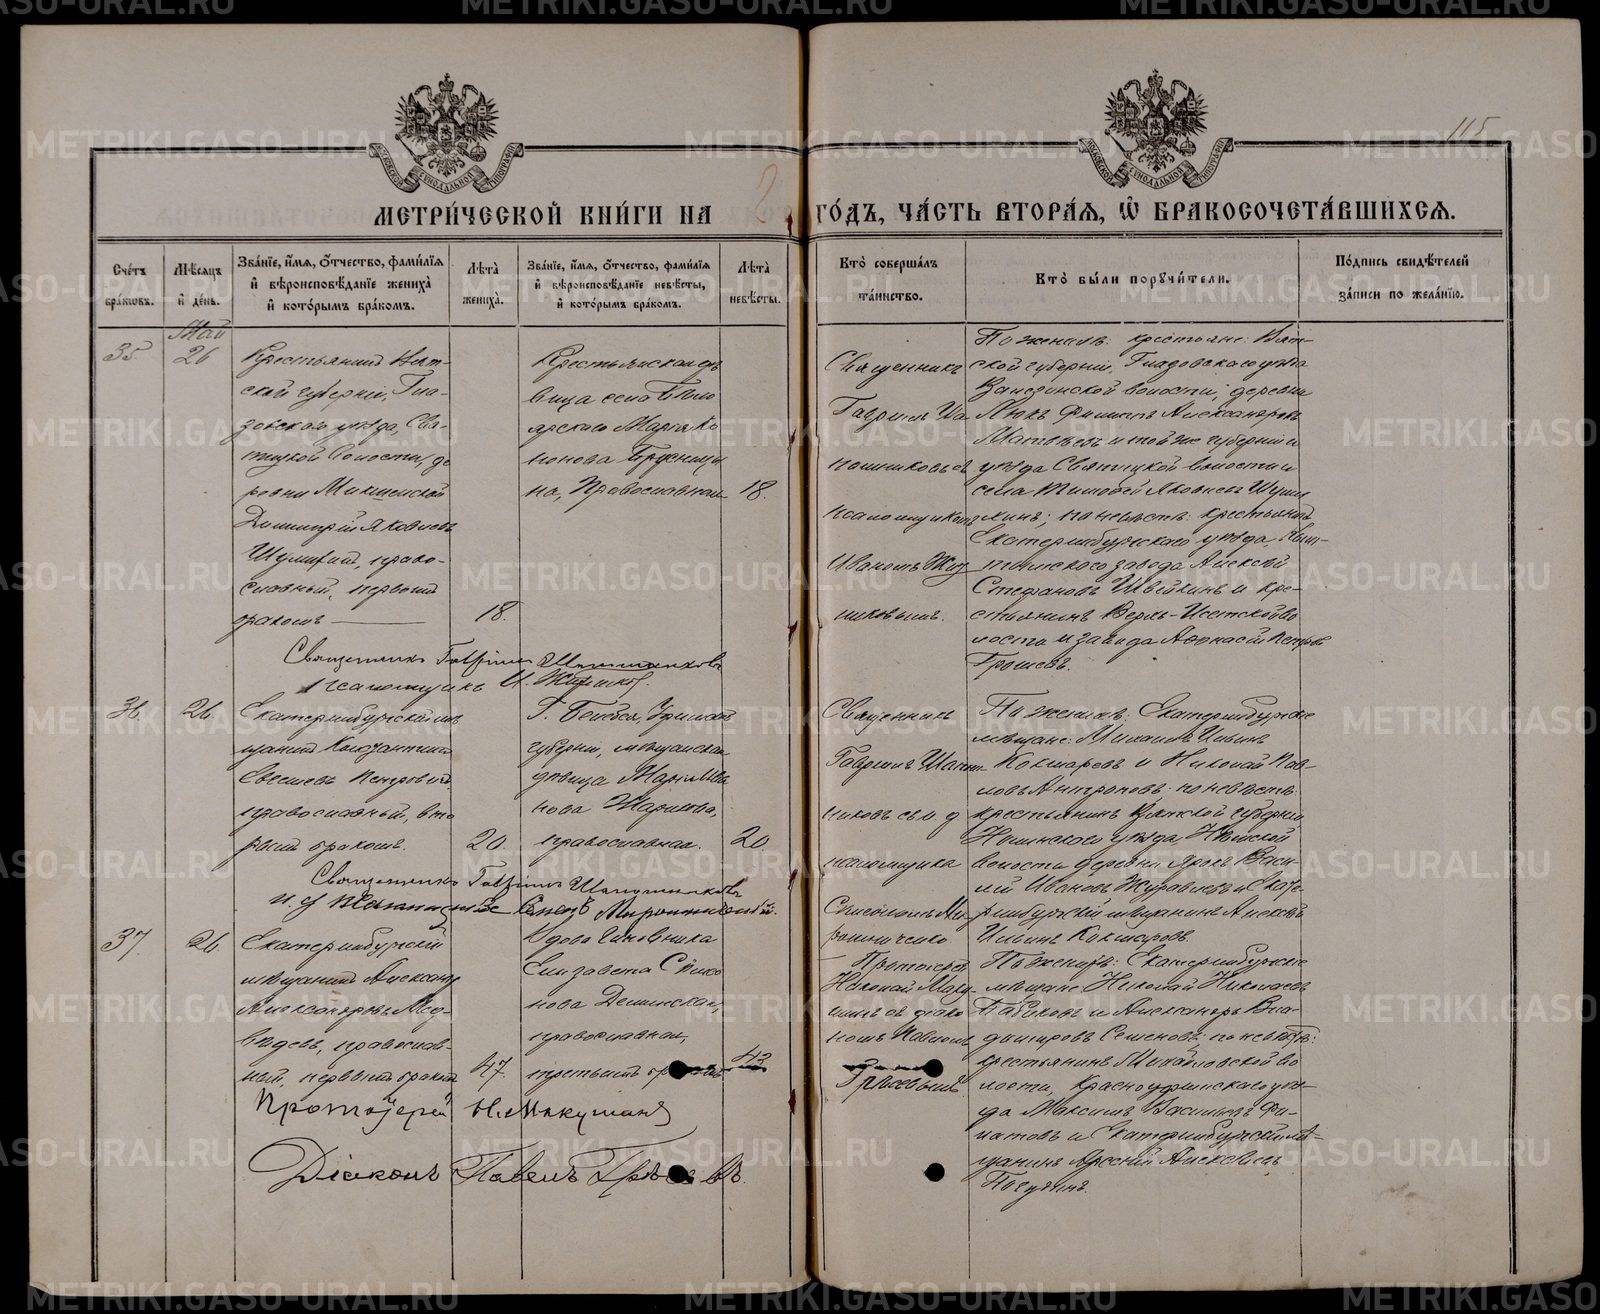 115
МЕТРИ́ЧЕСКОЙ КНИ́ГИ НА ГО́ДЪ, ЧА́СТЬ ВТОРА́Я, Ѽ БРАКОСОЧЕТА́ВШИХСЯ.
Сче́тъ бра́ковъ.
Мѣ́сяцъ и҆ де́нь.
Зва́нїе, и҆́мя, ѻ҆́тчество, фами́лїя и҆ вѣроисповѣ́данїе жениха̀ и҆ кото́рымъ бра́комъ.
Лѣ́та жениха̀.
Зва́нїе, и҆́мя, ѻ҆́тчество, фами́лїя и҆ вѣроисповѣ́данїе невѣ́сты, и҆ кото́рымъ бра́комъ.
Лѣ́та невѣ́сты.
Кто̀ соверша́лъ та́инство.
Кто̀ бы́ли порꙋчи́тели.
По́дпись свидѣ́телей за́писи по жела́нїю.
Май
35
26
Крестьянинъ Вят-
ской губерніи, Гла-
зовскаго уѣзда, Свя-
тицкой волости, де
ревни
Димитрій Яковлевъ
православ-
славный, первымъ
бракомъ
18.
Крестьянская дѣ
вица села
ярскаго Марія
нонова Брусницы
на, Православная
18.
Священникъ
Гавріилъ Ша
пошниковъ съ
псаломщикомъ
Иваномъ
никовымъ.
По женихѣ: крестьяне: Вят-
ской губерніи, Глазовскаго уѣзда
волости, деревни
Филиппъ Александровъ
Матвѣевъ и той же губерніи и
уѣзда Святицкой волости и
села Тимофей Яковлевъ
по невѣстѣ: крестьянинъ
Екатеринбургскаго уѣзда,
завода Алексѣй
Степановъ Швейкинъ и кре-
стьянинъ Верхъ-Исетской во
лости и завода Афонасій Петровъ
Грошевъ.
Священникъ Гавріилъ Шапошниковъ
Псаломщикъ И.
36.
26.
Екатеринбургскій мѣ
щанинъ Константинъ
Петровыхъ
православный, вто
рымъ бракомъ.
20.
Г. Белебея, Уфимской
губерніи, мѣщанская
дѣвица Марія Ива
нова
православная.
20
Священникъ
Гавріилъ Шапош-
никовъ съ и. д
псаломщика
Симеономъ Ми
рониченко
По женихѣ: Екатеринбургскіе
мѣщане: Михаилъ Ильинъ
Кокшаровъ и Николай Пав-
ловъ Антроповъ. по невѣстѣ:
крестьянинъ Вятской губерніи
Нолинскаго уѣзда,
волости деревни Васи-
лій Ивановъ Журавлевъ и Екате-
ринбургскій мѣщанинъ
Ильинъ Кокшаровъ.
Священникъ Гавріилъ Шапошниковъ
И. д Псаломщика Семенъ
37.
26.
Екатеринбургскій
мѣщанинъ Александръ
Александровъ Мед-
вѣдевъ, православ-
ный, первымъ бракомъ
47.
Вдова чиновника
Елизавета
нова Деминская,
православная,
третьимъ бракомъ
43
Протоіерей
Николай Маку-
шинъ съ діако
номъ Павломъ
Грѣховымъ
По женихѣ: Екатеринбургскіе
мѣщане Николай Николаевъ
Бабиковъ и Александръ Вла-
диміровъ Семеновъ; по невѣстѣ:
крестьянинъ Михайловской во
лости, Красноуфимскаго уѣз-
да Максимъ Васильевъ Фи-
латовъ и Екатеринбургскій мѣ-
щанинъ Арсеній Алексѣевъ
Протоіерей Н. Макушинъ
Діаконъ Павелъ Грѣховъ.
METRIKI.GASO-URAL.RU